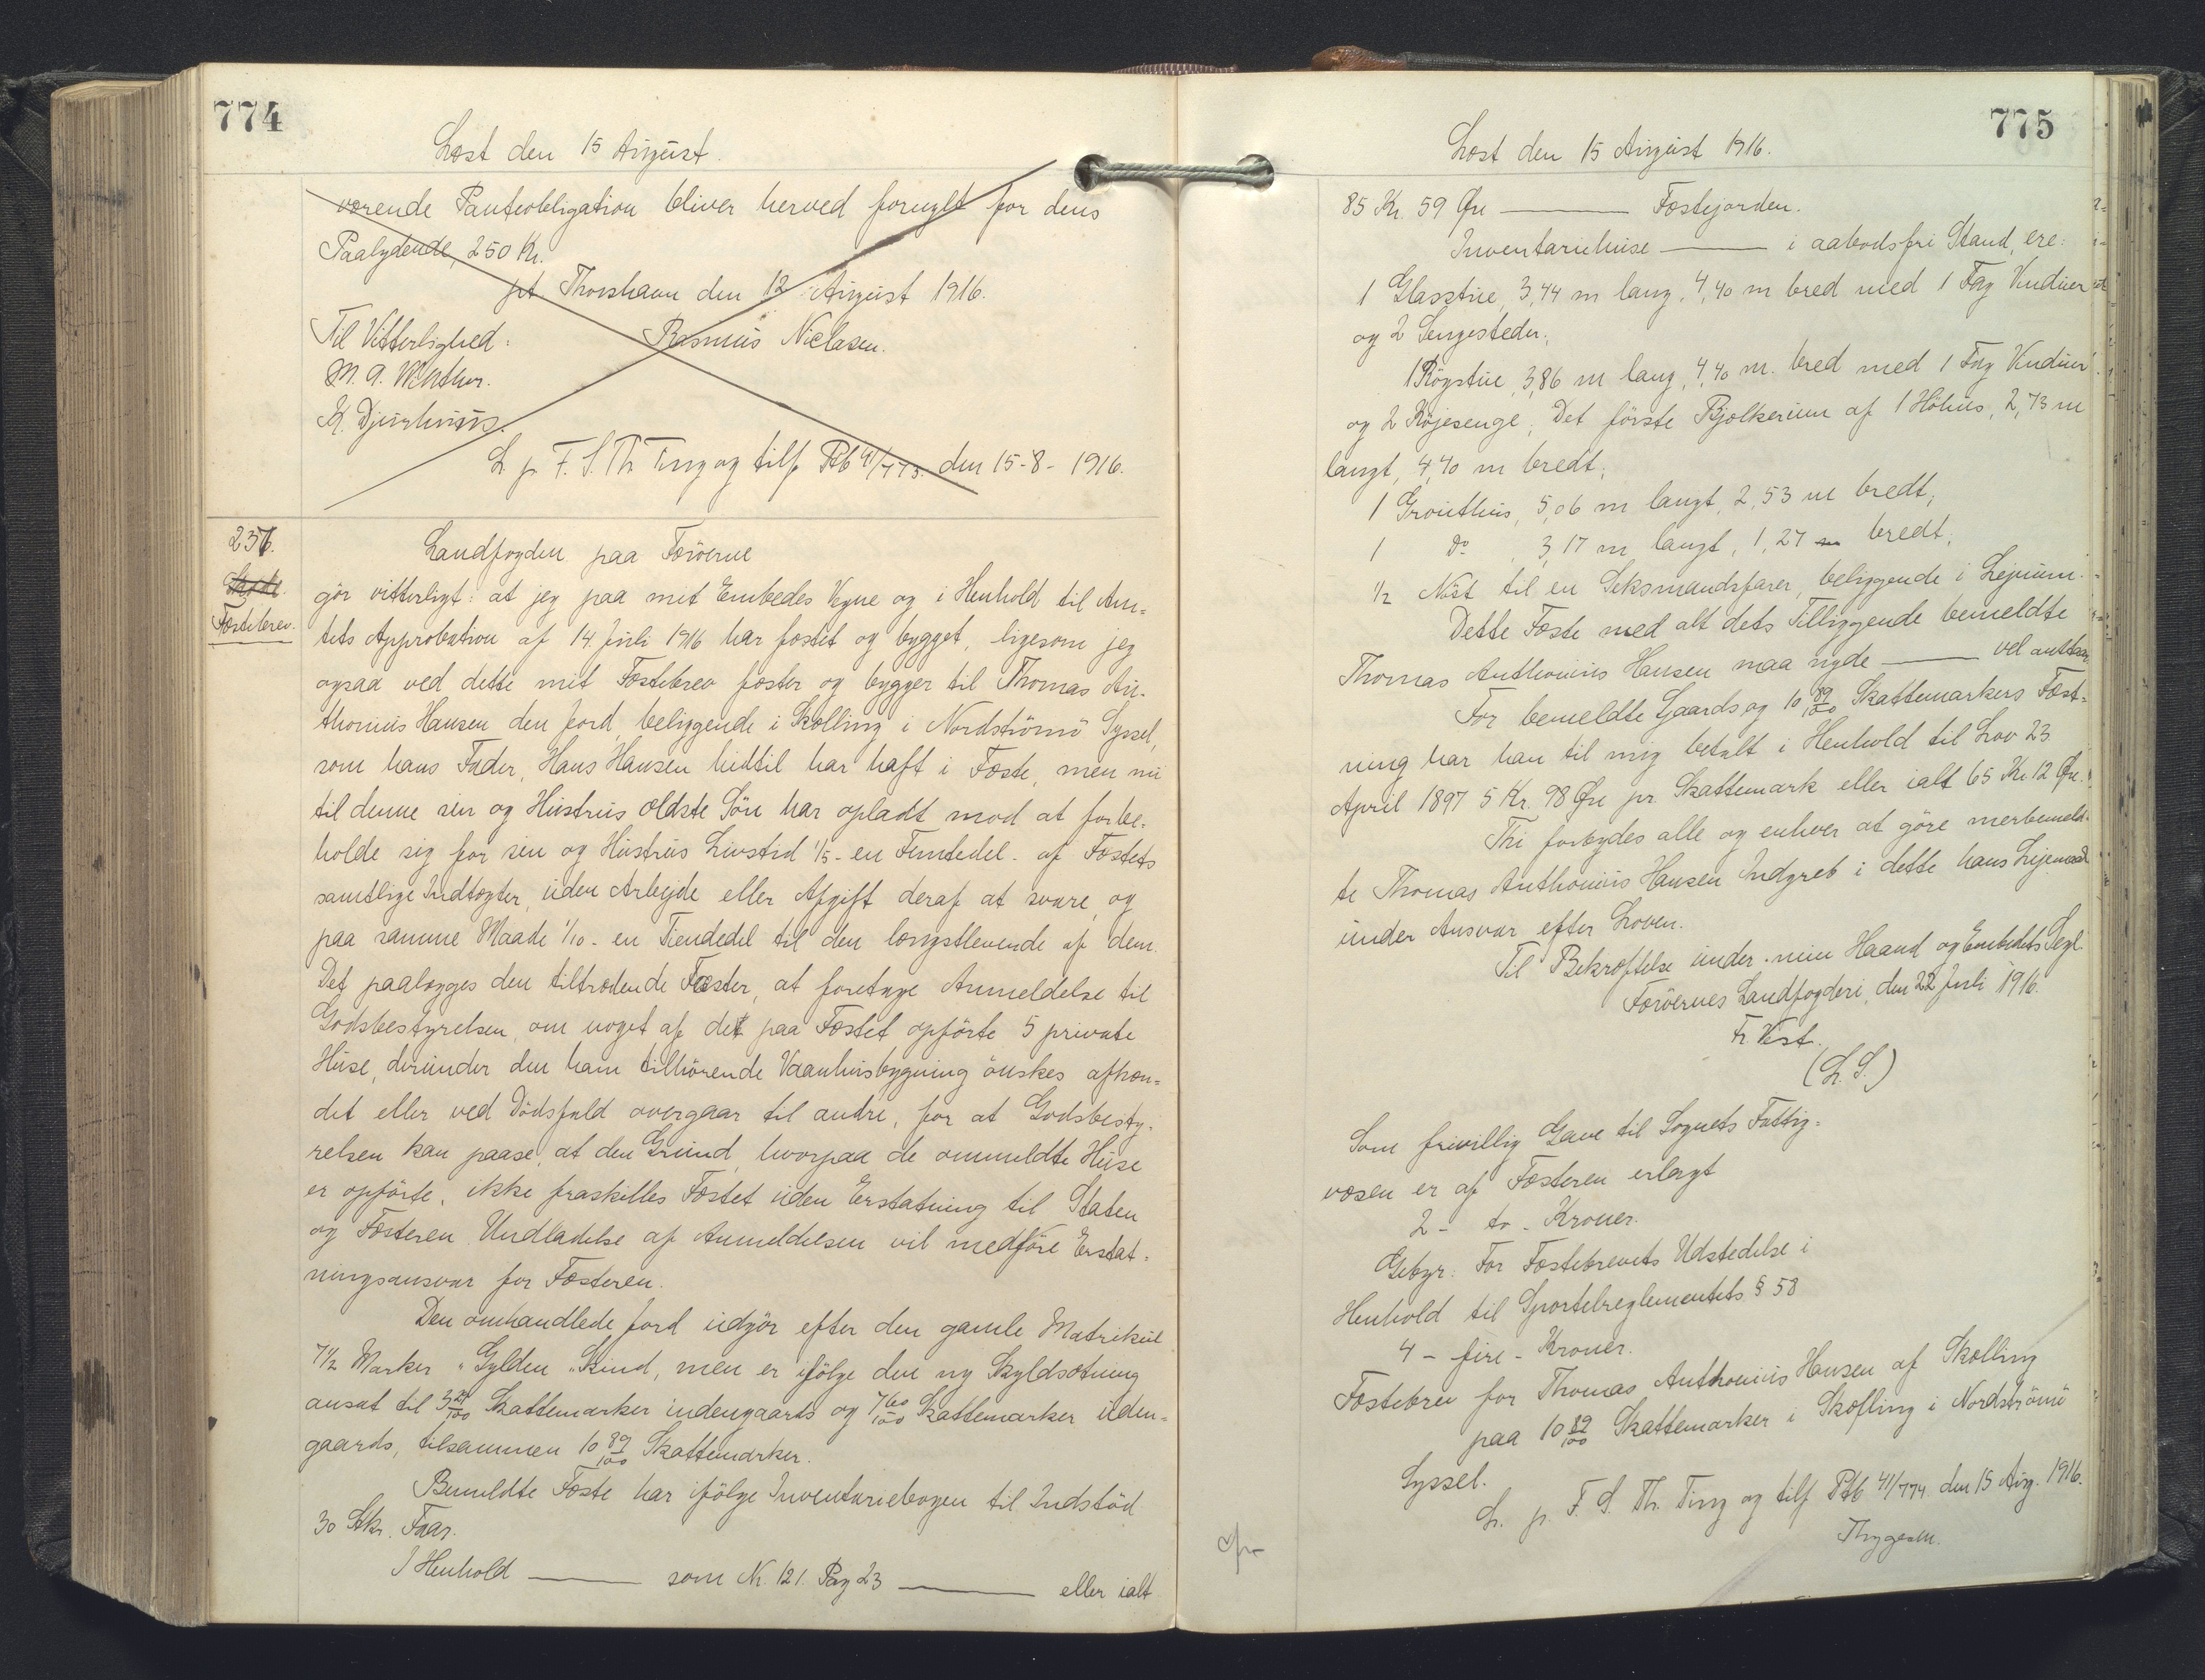 774
Læst den 15 August.
værende Panteobligation bliver herved fornyet for dens
Paalydende, 250 Kr.
pt Thorshavn den 12 August 1916.
Til Vitterlighed: Rasmus Nielasen.
M. A. Winther.
K. Djurhuus.
L. p. F. S. Th Ting og tilf Ptb 41/773. den 15-8-1916.
237.
Skøde.
Fæstebrev.
Landfogden paa Færöerne
gör vitterligt: at jeg paa mit Embedes Vegne og i Henhold til Am-
tets Approbation af 14. Juli 1916 har fæstet og bygget, ligesom jeg
ogsaa ved dette mit Fæstebrev fæster og bygger til Thomas An-
thonius Hansen den Jord, beliggende i Skælling i Nordströmö Syssel,
som hans Fader, Hans Hansen hidtil har haft i Fæste, men nu
til denne sin og Hustrus ældste Sön har opladt mod at forbe-
holde sig for sin og Hustrus Livstid 1/5 - en Femtedel - af Fæstets
samtlige Indtægter, uden Arbejde eller Afgift deraf at svare, og
paa samme Maade 1/10 - en Tiendedel til den længstlevende af dem.
Det paalægges den tiltrædende Fæster, at foretage Anmeldelse til
Godsbestyrelsen, om noget af det paa Fæstet opförte 5 private
Huse, derunder den ham tilhörende Vaanhusbygning önskes afhæn-
det eller ved Dödsfald overgaar til andre, for at Godsbesty-
relsen kan paase, at den Grund, hvorpaa de ommeldte Huse
er opförte, ikke fraskilles Fæstet uden Erstatning til Staten
og Fæsteren. Undladelse af Anmeldelsen vil medföre Erstat-
ningsansvar for Fæsteren.
Den omhandlede Jord udgör efter den gamle Matrikul
7 1/2 Marker "Gylden" Skind, men er ifölge den ny Skyldsætning
ansat til 3 29/100 Skattemarker indengaards og 7 60/100 Skattemarker uden-
gaards, tilsammen 10 89/100 Skattemarker.
Bemeldte Fæste har ifölge Inventariebogen til Indstöd
30 Stkr. Faar.
I Henhold ——— som N. 121. Pag 23 ——— eller ialt
775
Læst den 15 August 1916.
85 Kr. 59 Øre ——— Fæstejorden.
Inventariehuse ——— i aabodsfri Stand, ere:
1 Glasstue, 3,44 m lang, 4,40 m bred med 1 Fag Vinduer
og 2 Sengesteder;
1 Rögstue, 3,86 m lang, 4,40 m. bred med 1 Fag Vinduer
og 2 Køjesenge; Det förste Bjælkerum af 1 Höhus, 2,73 m
langt, 4,40 m bredt;
1 Grouthus, 5,06 m langt, 2,53 m bredt;
1 do, 3,17 m langt, 1,27 m bredt;
1/2 Nøst til en Seksmandsfarer, beliggende i Lejnum.
Dette Fæste med alt dets Tilliggende bemeldte
Thomas Anthonius Hansen maa nyde ——— vel anstaar.
For bemeldte Gaards og 10 89/100 Skattemarkers Fæst-
ning har han til mig betalt i Henhold til Lov 23
April 1897 5 Kr. 98 Øre pr. Skattemark eller ialt 65 Kr 12 Øre.
Thi forbydes alle og enhver at göre merbemeld-
te Thomas Anthonius Hansen Indgreb i dette hans Lejemaal
under Ansvar efter Loven.
Til Bekræftelse under min Haand og Embedets Segl.
Færöernes Landfogderi, den 22 Juli 1916.
Fr. Vest.
(L. S.)
Som frivillig Gave til Sognets Fattig-
væsen er af Fæsteren erlagt
2 - to - Kroner.
Gebyr: For Fæstebrevets Udstedelse i
Henhold til Sportelreglementets § 58
4 - fire - Kroner.
Fæstebrev for Thomas Anthonius Hansen af Skælling
paa 10 89/100 Skattemarker i Skælling i Nordströmö
Syssel.
L. p. F. S. Th. Ting og tilf Ptb 41/774 den 15 Aug. 1916.
Thygesen.